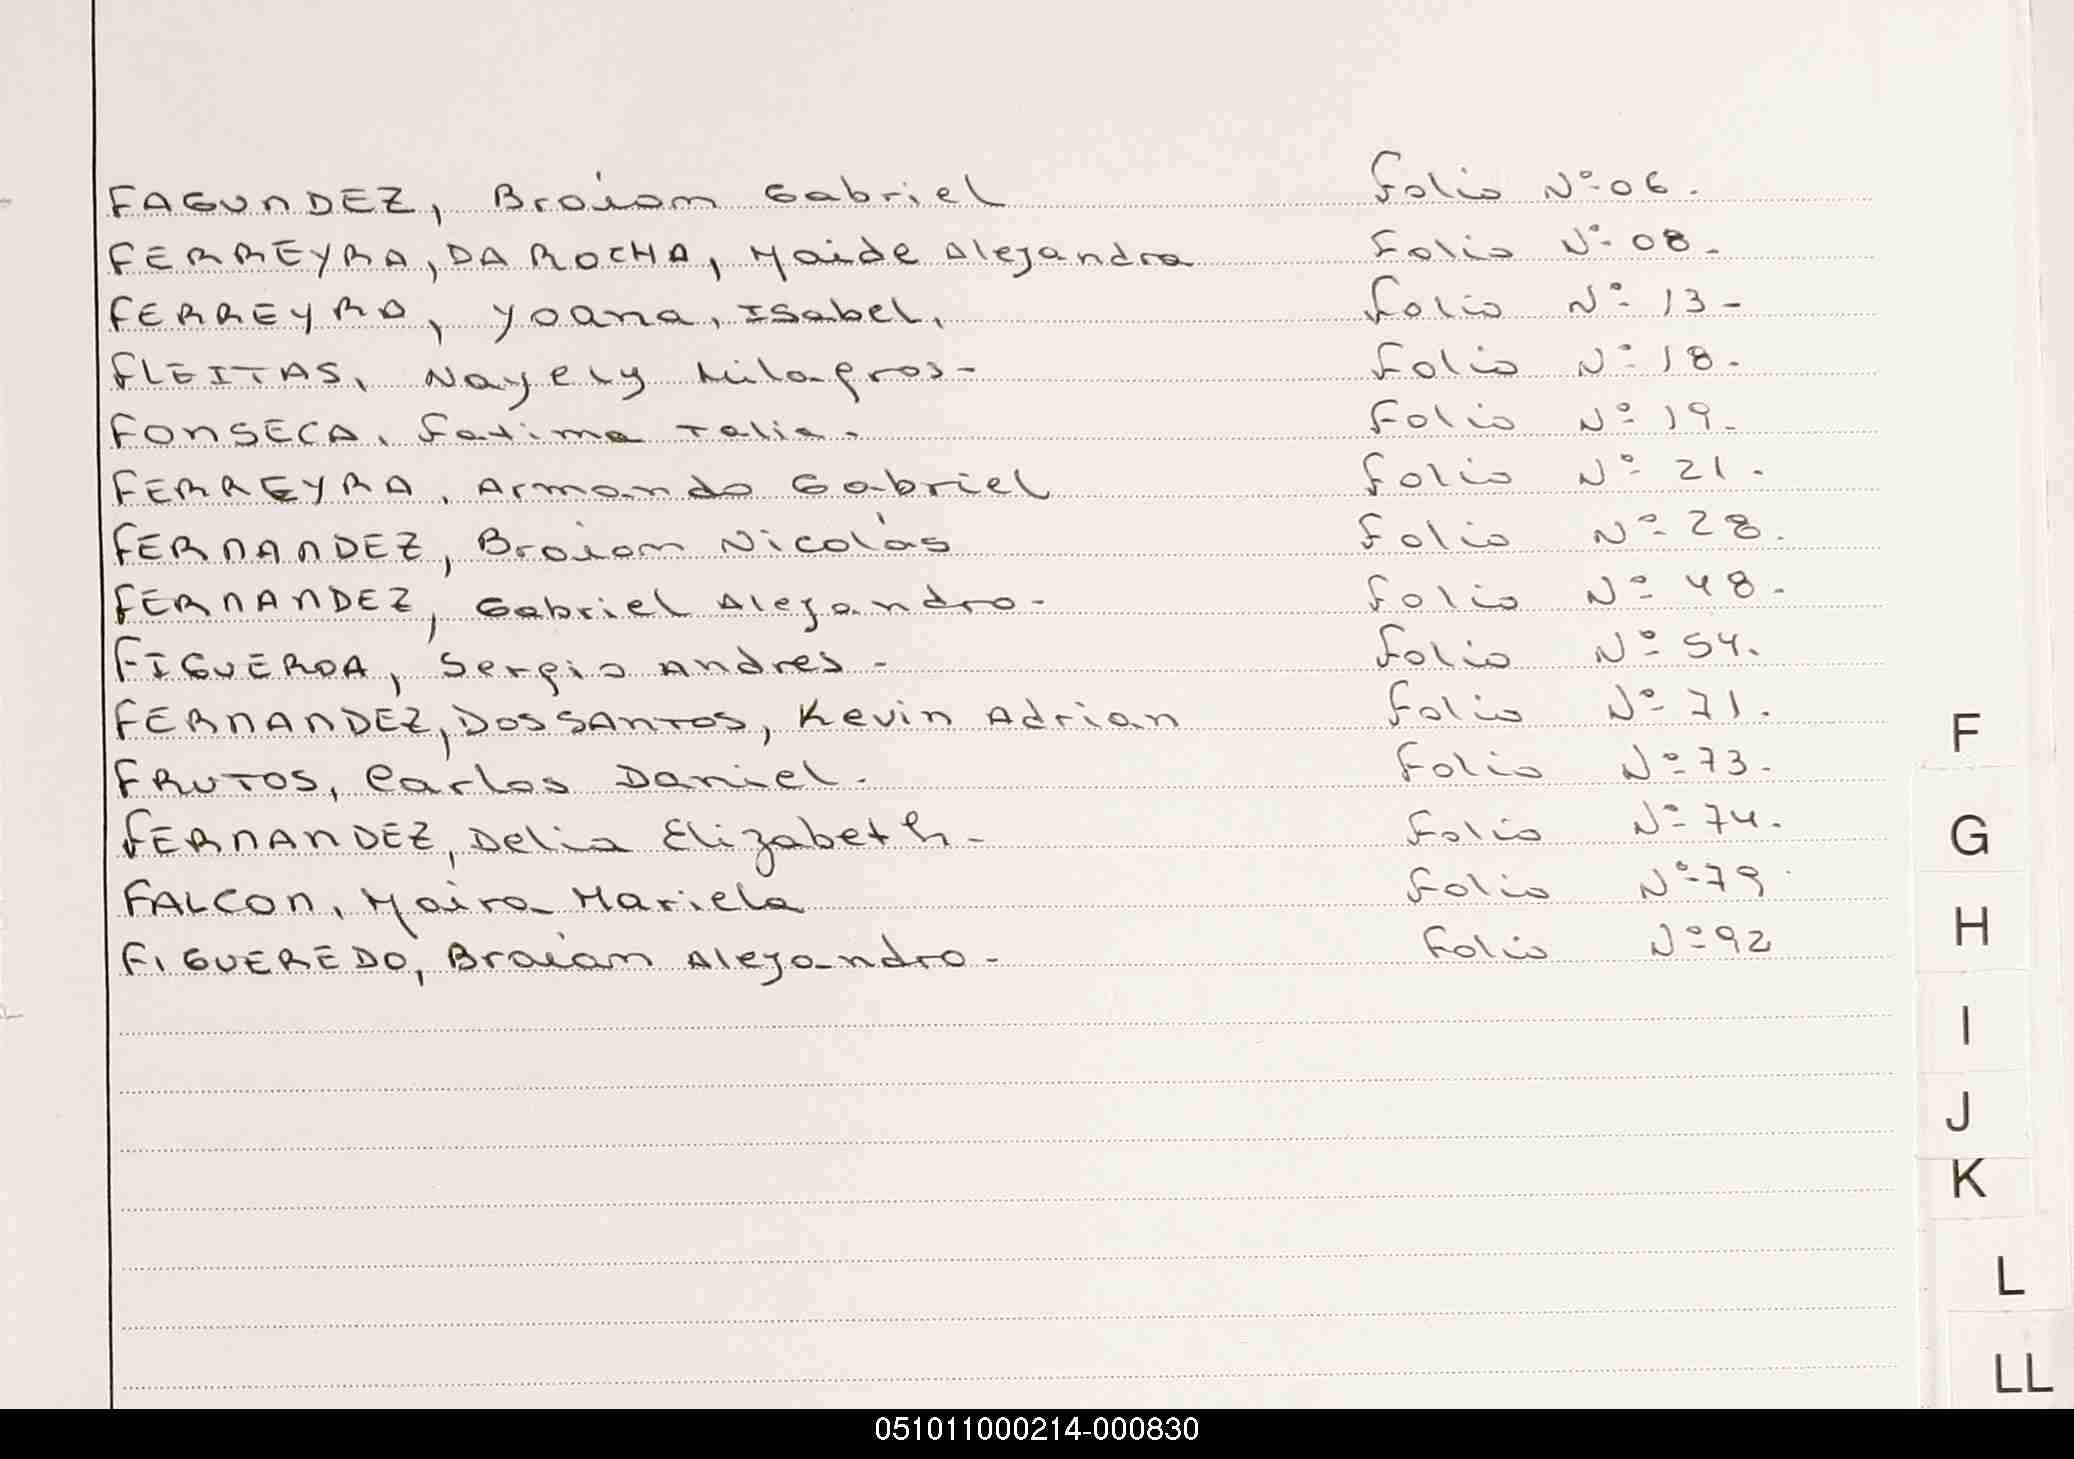 FAGUNDEZ, Braian Gabriel Folio Nº 06.
FERREYRA, DA ROCHA, Maide Alejandra Folio Nº 08-
FERREYRA, Yoana, Isabel, Folio Nº 13-
FLEITAS, Nayely Milagros- Folio Nº 18.
FONSECA, Fatima Talia. Folio Nº 19-
FERREYRA, Armando Gabriel Folio Nº 21.
FERNANDEZ, Braian Nicolás Folio Nº 28.
FERNANDEZ, Gabriel Alejandro- Folio Nº 48.
FIGUEROA, Sergio Andres- Folio Nº 54.
FERNANDEZ, DOS SANTOS, Kevin Adrian Folio Nº 71.
FRUTOS, Carlos Daniel. Folio Nº 73.
FERNANDEZ, Delia Elizabeth- Folio Nº 74.
FALCON, Maira Mariela Folio Nº 79
FIGUEREDO, Braian Alejandro- Folio Nº 92
F
G
H
I
J
K
L
LL
051011000214-000830